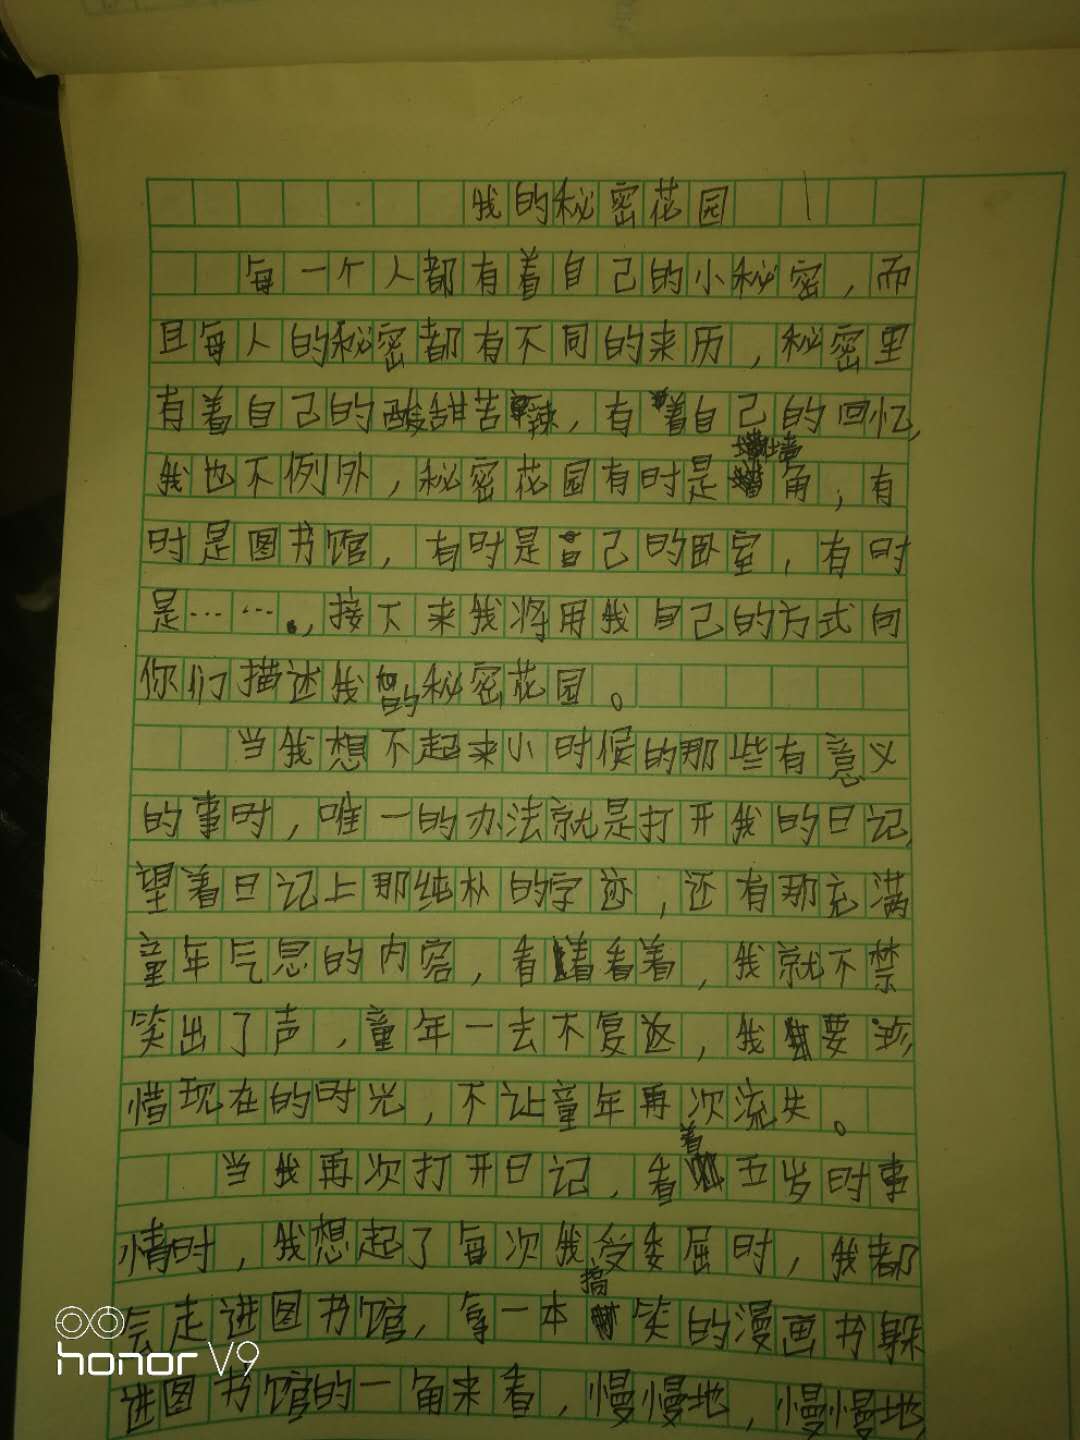 我的秘密花园
每一个人都有着自己的小秘密，而
且每人的秘密都有不同的来历，秘密里
有着自己的酸甜苦辣，有着自己的回忆，
我也不例外，秘密花园有时是墙角，有
时是图书馆，有时是自己的卧室，有时
是……，接下来我将用我自己的方式向
你们描述我的秘密花园。
当我想不起来小时候的那些有意义
的事时，唯一的办法就是打开我的日记，
望着日记上那纯朴的字迹，还有那充满
童年气息的内容，看着看着，我就不禁
笑出了声，童年一去不复返，我要珍
惜现在的时光，不让童年再次流失。
当我再次打开日记，看着五岁时事
情时，我想起了每次我受委屈时，我都
会走进图书馆，拿一本搞笑的漫画书躲
进图书馆的一角来看，慢慢地，慢慢地，
honor V9